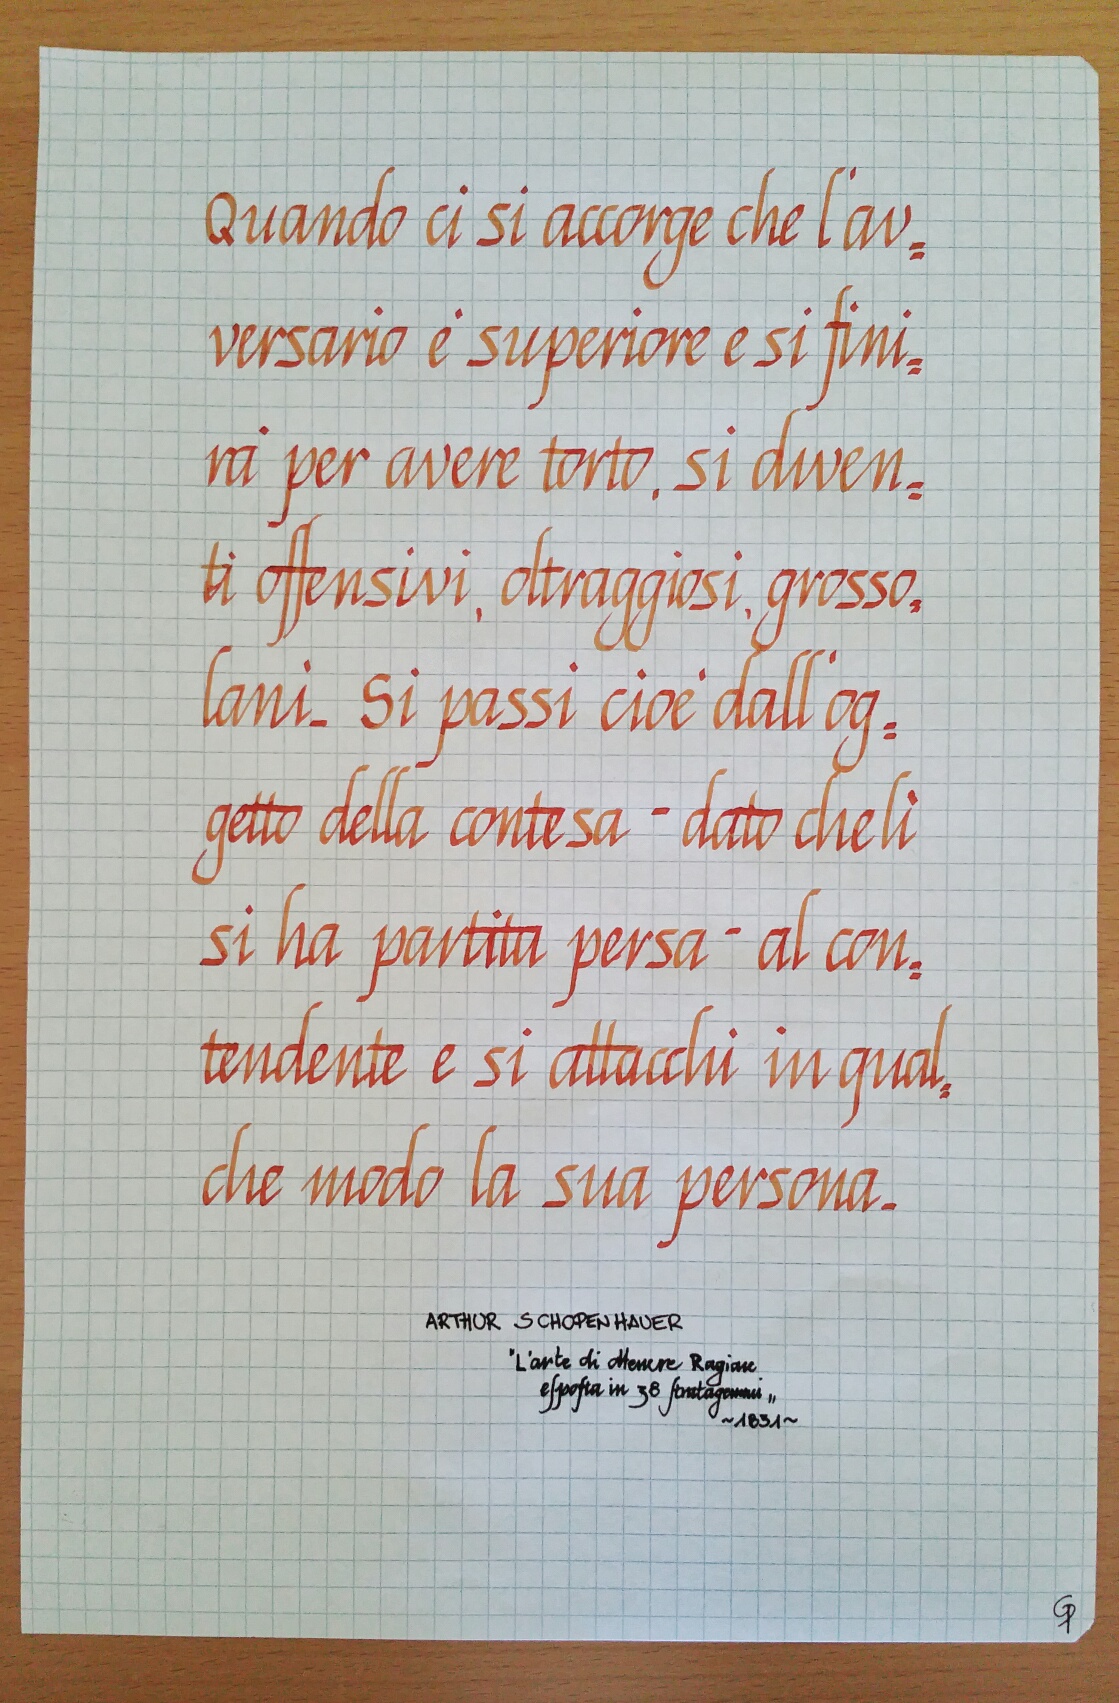 Quando ci si accorge che l'av=
versario è superiore e si fini=
rà per avere torto, si diven=
ti offensivi, oltraggiosi, grosso=
lani. Si passi cioè dall'og=
getto della contesa - dato che lì
si ha partita persa - al con=
tendente e si attacchi in qual=
che modo la sua persona.
ARTHUR SCHOPENHAUER
"L'arte di ottenere Ragione
eſpoſta in 38 ſtratagemmi„
~1831~
GP